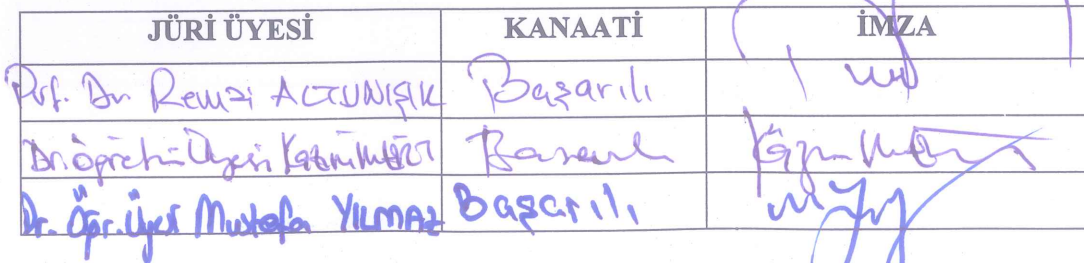 JÜRİ ÜYESİ KANAATİ İMZA
Prof. Dr. Remzi ALTUNIŞIK Başarılı
Dr. Öğretim Üyesi Başarılı
Dr. Öğr. Üyesi Mustafa YILMAZ Başarılı